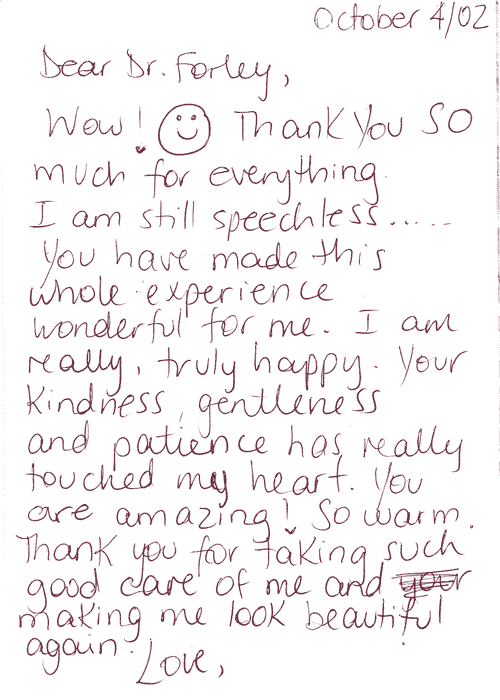 October 4/02
Dear Dr. Forley,
Wow! Thank You SO
much for everything.
I am still speechless.....
You have made this
whole experience
wonderful for me. I am
really, truly happy. Your
kindness, gentleness
and patience has really
touched my heart. You
are amazing! So warm.
Thank you for taking such
good care of me and your
making me look beautiful
again.
Love,